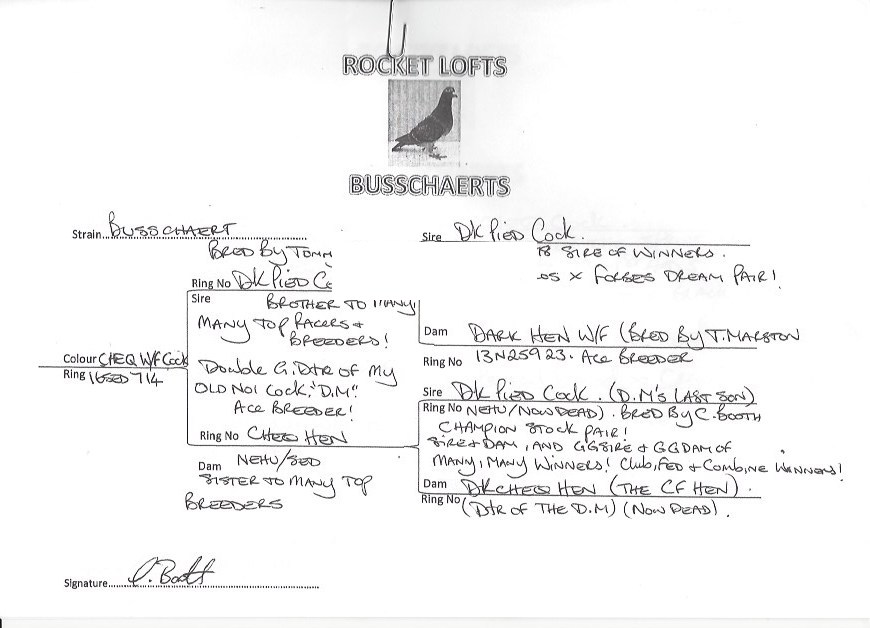 ROCKET LOFTS
BUSSCHAERTS
Strain BUSSCHAERT
BRED BY TOMM
Sire DK PIED COCK.
SIRE OF WINNERS.
.05 X FORBES DREAM PAIR!
Ring No DK PIED C
Sire BROTHER TO MANY,
MANY TOP RACERS +
BREEDERS!
Dam DARK HEN W/F (BRED BY T. MARSTON
Ring No 13N25923. ACE BREEDER
Colour CHEQ W/F COCK
Ring 16SED 714
DOUBLE G. DTR OF MY
OLD NO1 COCK, "D.M".
ACE BREEDER!
Ring No CHEQ HEN
Dam NEHU/SED
SISTER TO MANY TOP
BREEDERS
Sire DK PIED COCK. (D.M'S LAST SON)
Ring No NEHU/NOW DEAD). BRED BY C. BOOTH
CHAMPION STOCK PAIR!
SIRE + DAM, AND GGSIRE + GGDAM OF
MANY, MANY WINNERS! CLUB, FED + COMBINE WINNERS!
Dam DK CHEQ HEN (THE CF HEN).
Ring No (DTR OF THE D.M) (NOW DEAD).
Signature C. Booth